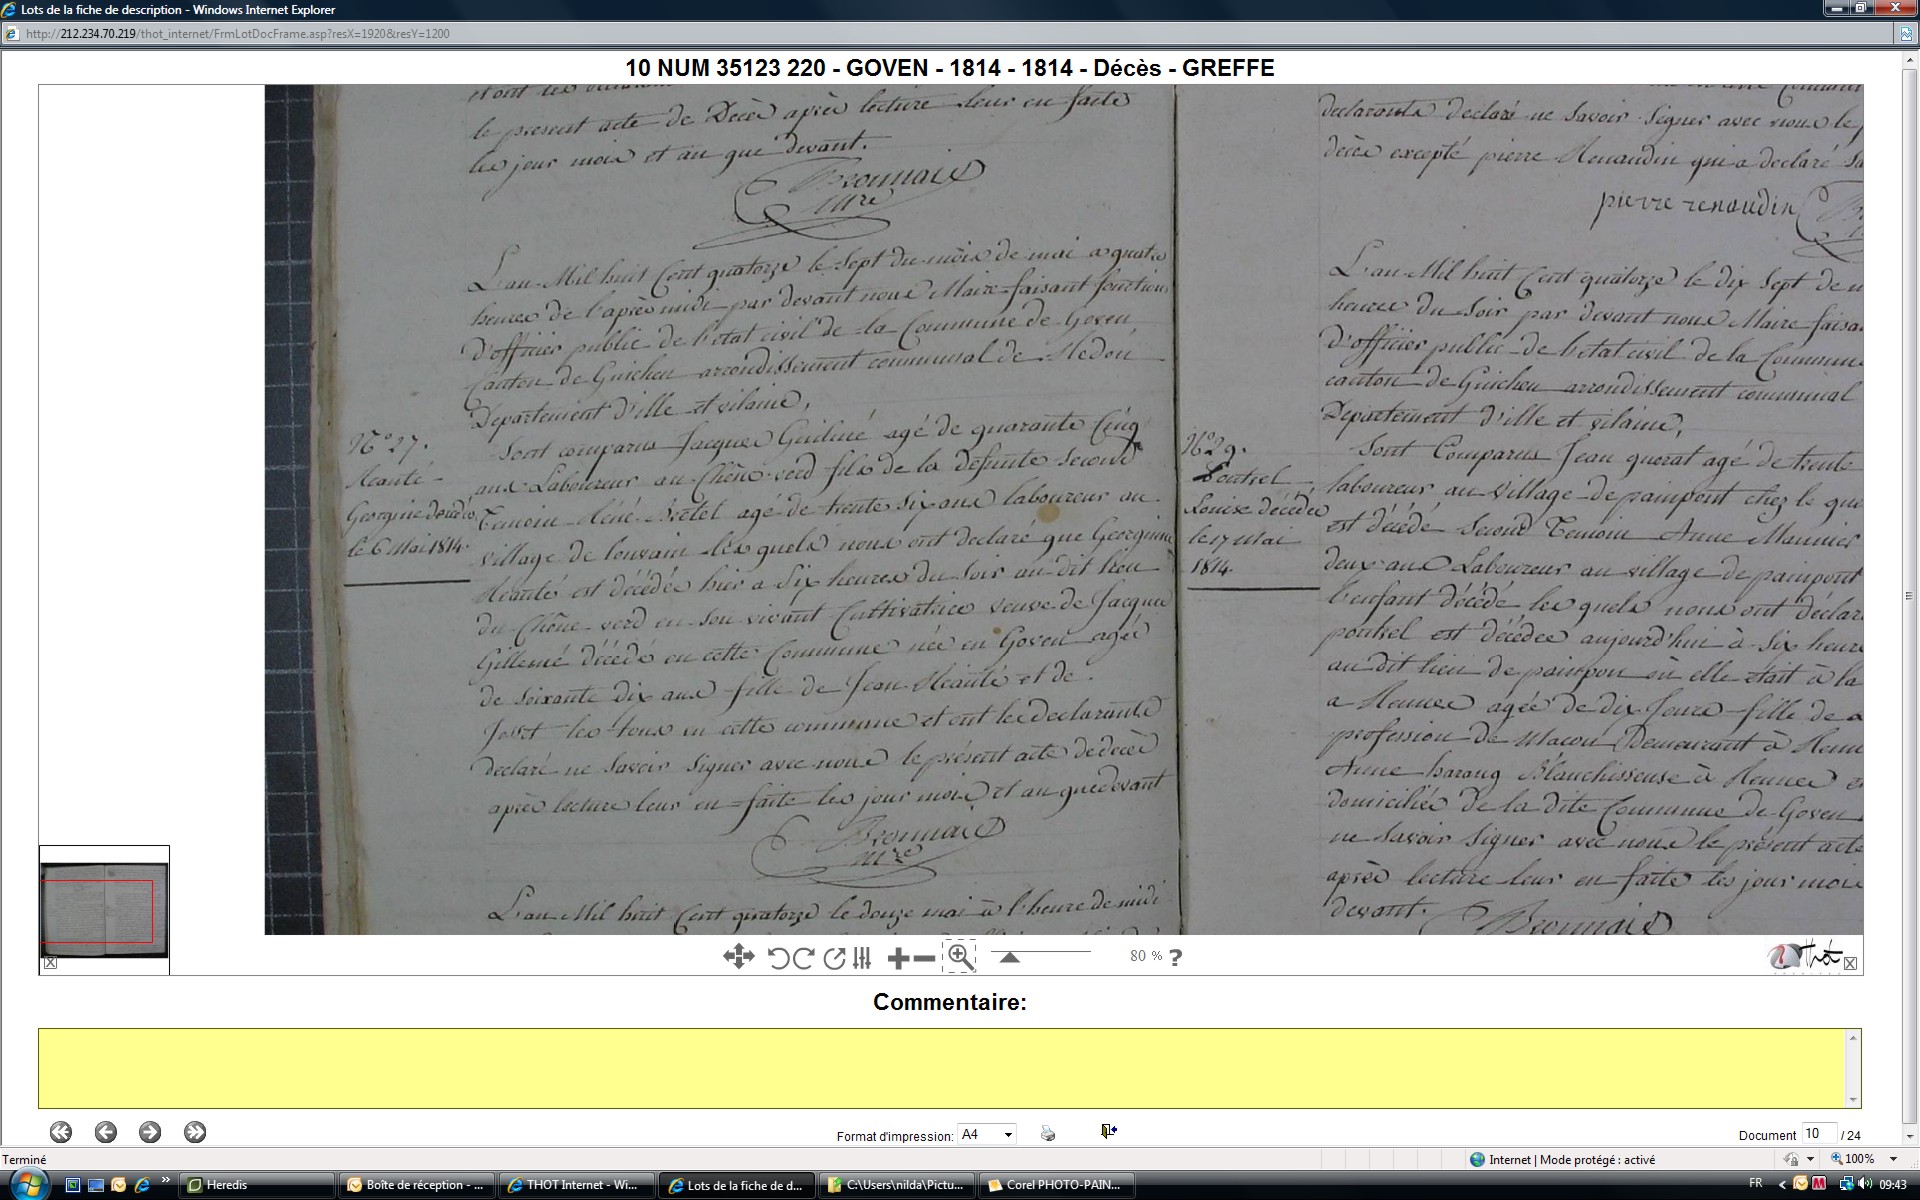 Lots de la fiche de description - Windows Internet Explorer
http://212.234.70.219/thot_internet/FrmLotDocFrame.asp?resX=1920&resY=1200
10 NUM 35123 220 - GOVEN - 1814 - 1814 - Décès - GREFFE
le present acte de Décès après lecture leur en faite
les jour mois et an que devant.
Bronnais
Mre
L'an Mil huit Cent quatorze le sept du mois de mai a quatre
heures de l'après midi par devant nous Maire faisant fonctions
D'officier public de l'état civil de la Commune de Goven
Canton de Guichen arrondissement communal de Redon
Departement d'ille et vilaine,
N° 27.
Réauté
Georgine décédée
le 6 Mai 1814.
Sont comparus Jacques Guiliné agé de quarante Cinq
ans Laboureur au Chêne verd fils de la defunte second
Temoin Réné Brétel agé de trente six ans laboureur au
village de louvain les quels nous ont declaré que Georgine
Réauté est décédée hier a six heures du soir au dit lieu
du Chêne verd en son vivant Cultivatrice veuve de Jacques
Gillemé décédé en cette Commune née en Goven agée
de soixante dix ans fille de Jean Réauté et de
les tous en cette commune et ont les declarants
declaré ne savoir signer avec nous le présent acte de decès
après lecture leur en faite les jour mois et an que devant
Bronnais
Mre
L'an Mil huit Cent quatorze le douze mai à l'heure de midi
declarants declaré ne savoir signer avec nous le
décès excepté pierre Renaudin qui a declaré
pierre renaudin
L'an Mil huit Cent quatorze le dix sept de
heures du soir par devant nous Maire
D'officier public de l'état civil de la Commune
canton de Guichen arrondissement communal
Departement d'ille et vilaine,
N° 29.
Louise décédée
le 17 Mai
1814.
Sont Comparus Jean querat agé de trente
laboureur au village de painpont chez le
est décédé second Temoin Anne Maunier
deux ans Laboureur au village de painpont
l'enfant décédé les quels nous ont
est décédée aujourd'hui à six
au dit lieu de painpon où elle était à la
a Rennes agée de dix Jours fille de
profession de Macon Demeurant à
Anne harang Blanchisseuse à Rennes
domiciliés de la dite Commune de Goven
ne savoir signer avec nous le présent acte
après lecture leur en faite les jour mois
devant.
Bronnais
80 % ?
Thot
Commentaire:
Format d'impression: A4
Document 10 / 24
Terminé
Internet | Mode protégé : activé
100%
Heredis
Boîte de réception - ...
THOT Internet - Wi...
Lots de la fiche de d...
C:\Users\nilda\Pictu...
Corel PHOTO-PAIN...
FR
09:43